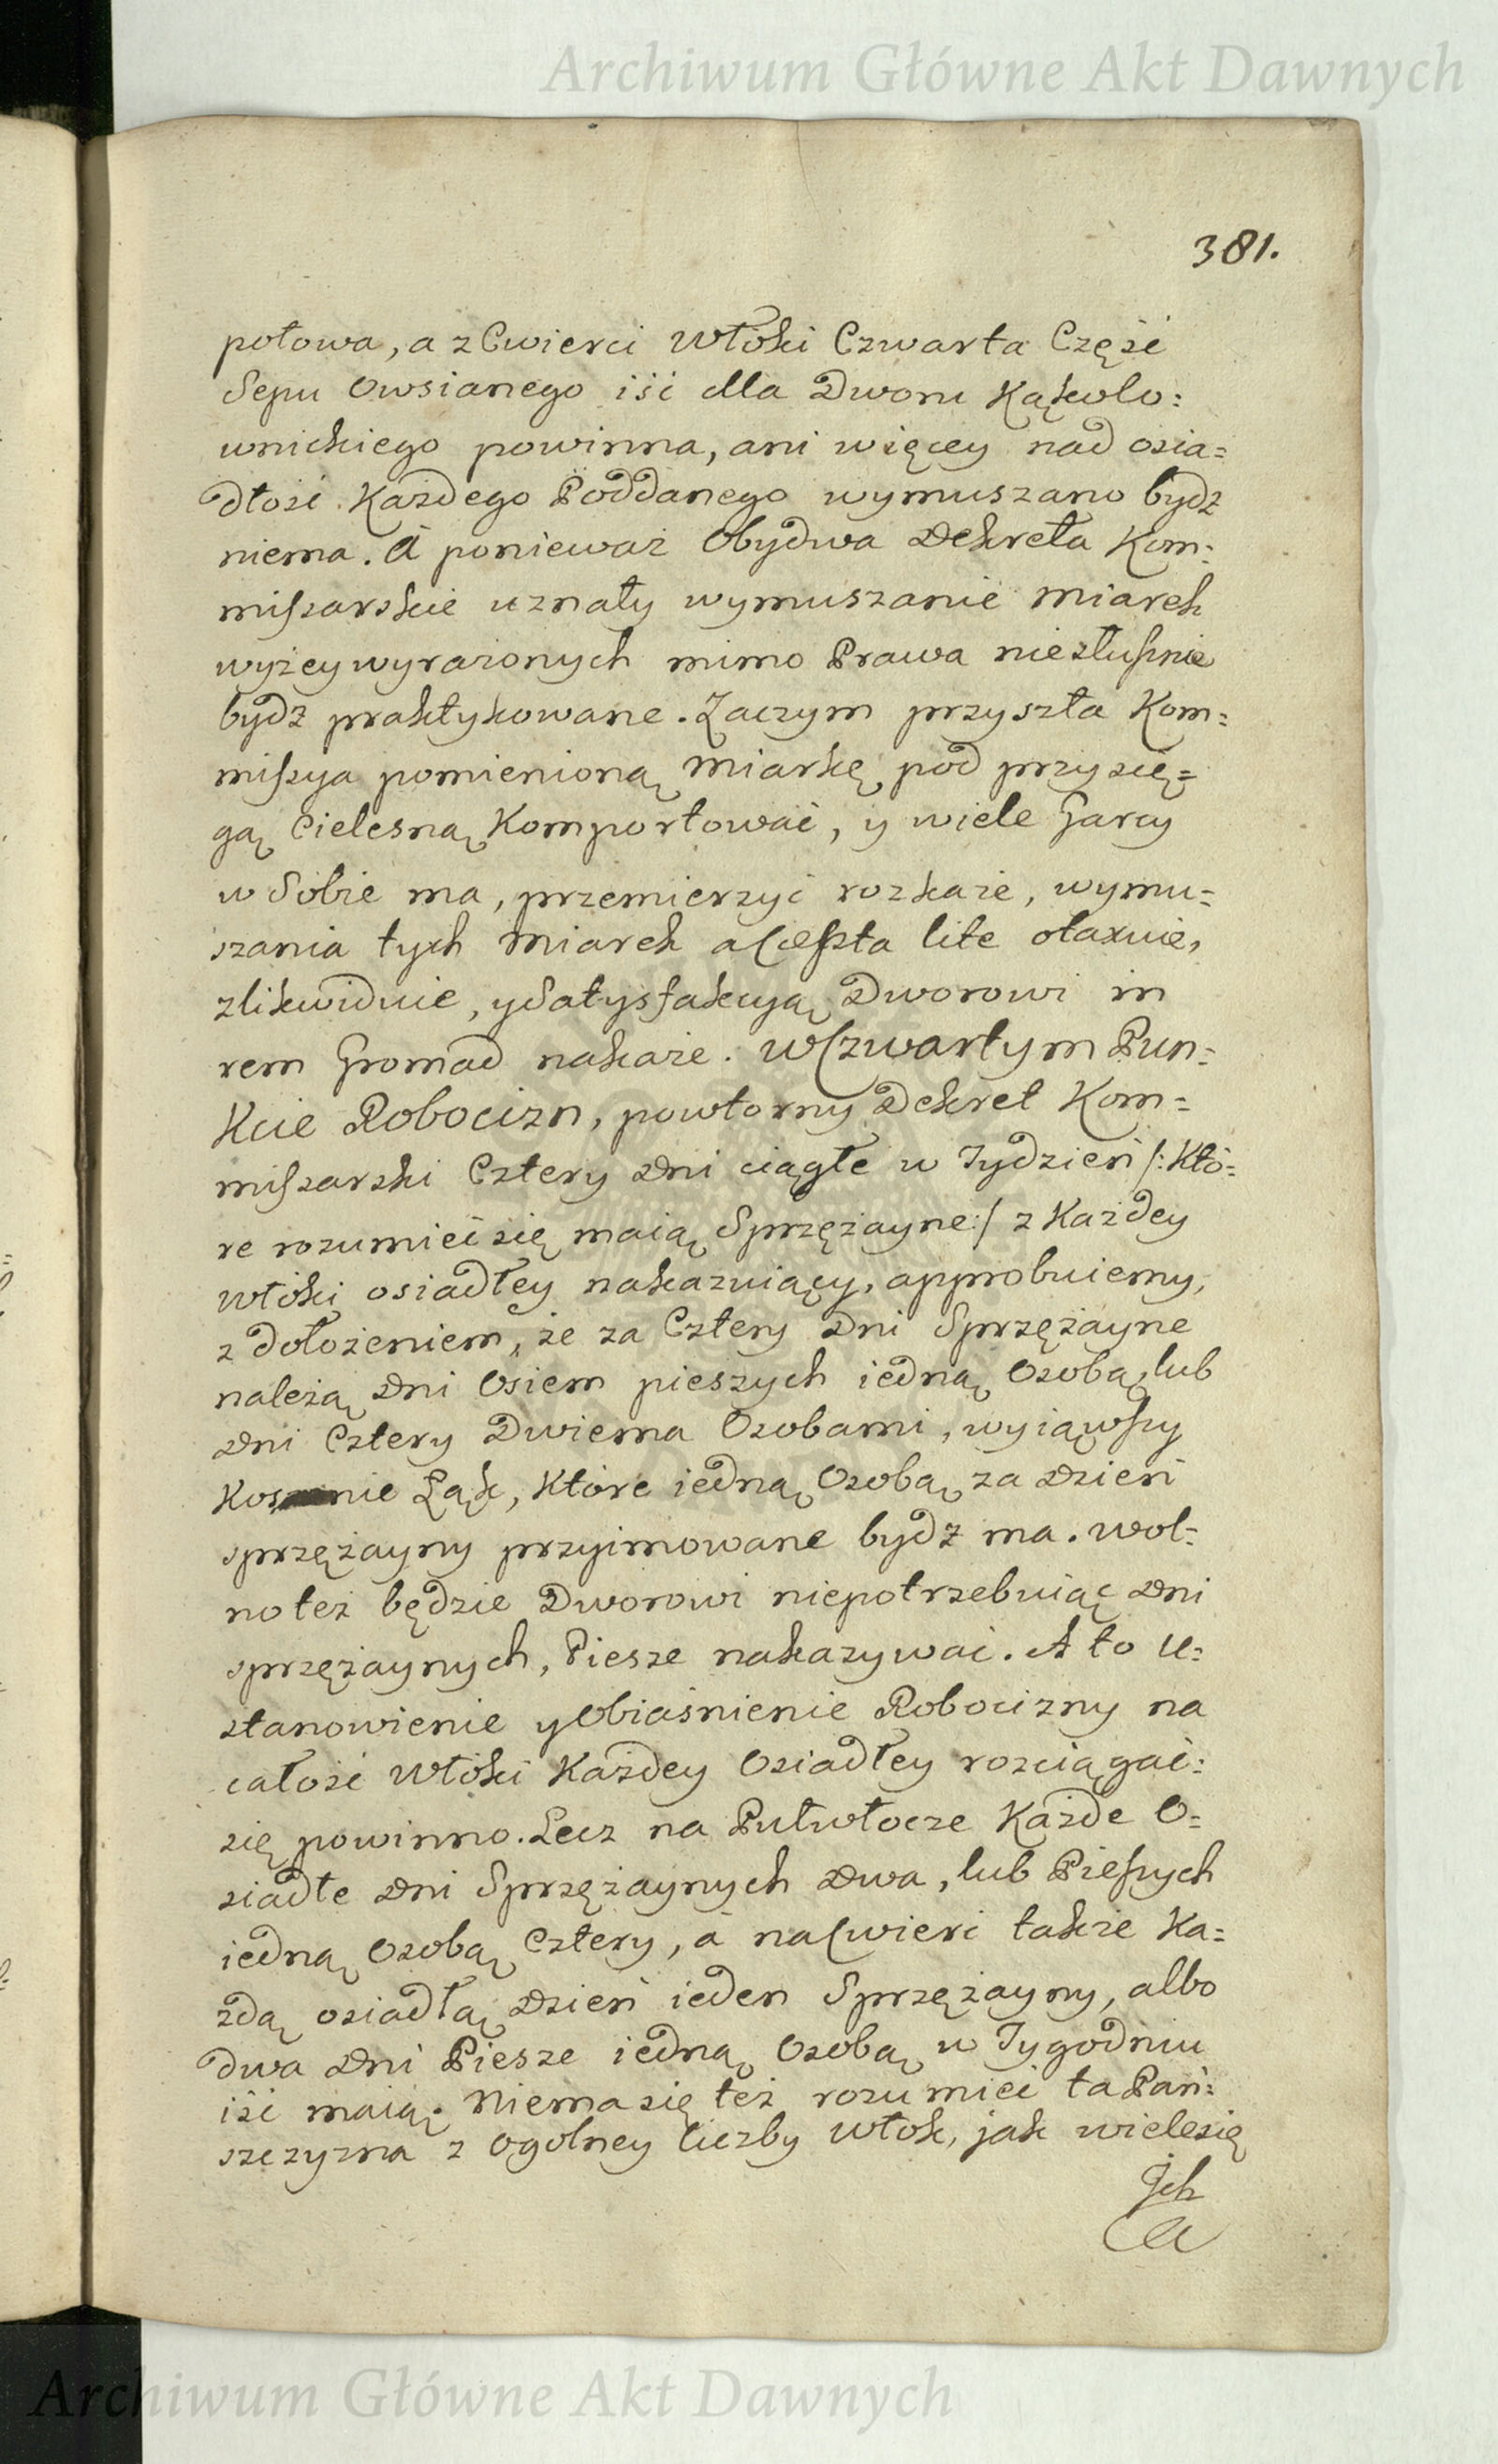 Archiwum Główne Akt Dawnych
381.
połowa, a z Cwierci Włoki Czwarta Część
Sepu Owsianego iść dla Dworu Kąkolo:
wnickiego powinna, ani więcey nad osia=
dłość Każdego Poddanego wymuszano bydz
niema. A ponieważ Obydwa Dekreta Kom:
missarskie uznały wymuszanie miarek
wyżey wyrażonych mimo Prawa niesłusznie
bydź praktykowane. Zaczym przyszła Kom=
missya pomienioną Miarkę pod przysię=
gą Cielesną Komportować, y wiele Garcy
w Sobie ma, przemierzyć rozkaże, wymu=
szania tych Miarek a Cessta lite otaxuie,
zlikwiduie, y Satysfakcyą Dworowi in
rem Gromad nakaże. W Czwartym Pun=
Kcie Robocizn, powtorny Dekret Kom=
missarski Cztery Dni ciągłe w Tydzień /: Któ=
re rozumieć się maią Sprzężayne :/ z Każdey
włoki osiadłey nakazuiący, approbuiemy,
z dołożeniem, że za Cztery Dni Sprzężayne
należą Dni Osiem pieszych iedną Osobą, lub
Dni Cztery Dwiema Osobami, wyiąwszy
Koszenie Łąk, Które iedną Osobą za Dzień
sprzężayny przyimowane bydź ma. Wol=
no też będzie Dworowi niepotrzebuiąc Dni
sprzężaynych, Piesze nakazywać. A to U=
stanowienie y Obiaśnienie Robocizny na
całość Włoki Każdey Osiadłey rosciągać=
się powinno. Lecz na Pułwłocze Każde O=
siadłe Dni Sprzężaynych Dwa, lub Pieszych
iedną Osobą Cztery, á na Cwierć także Ka=
żdą osiadłą Dzień ieden Sprzężayny, albo
dwa Dni Piesze iedną Osobą w Tygodniu
iść maią. Niema się też rozumieć ta Pań=
szczyzna z Ogolney liczby Włok, jak wiele się
Jch
Archiwum Główne Akt Dawnych